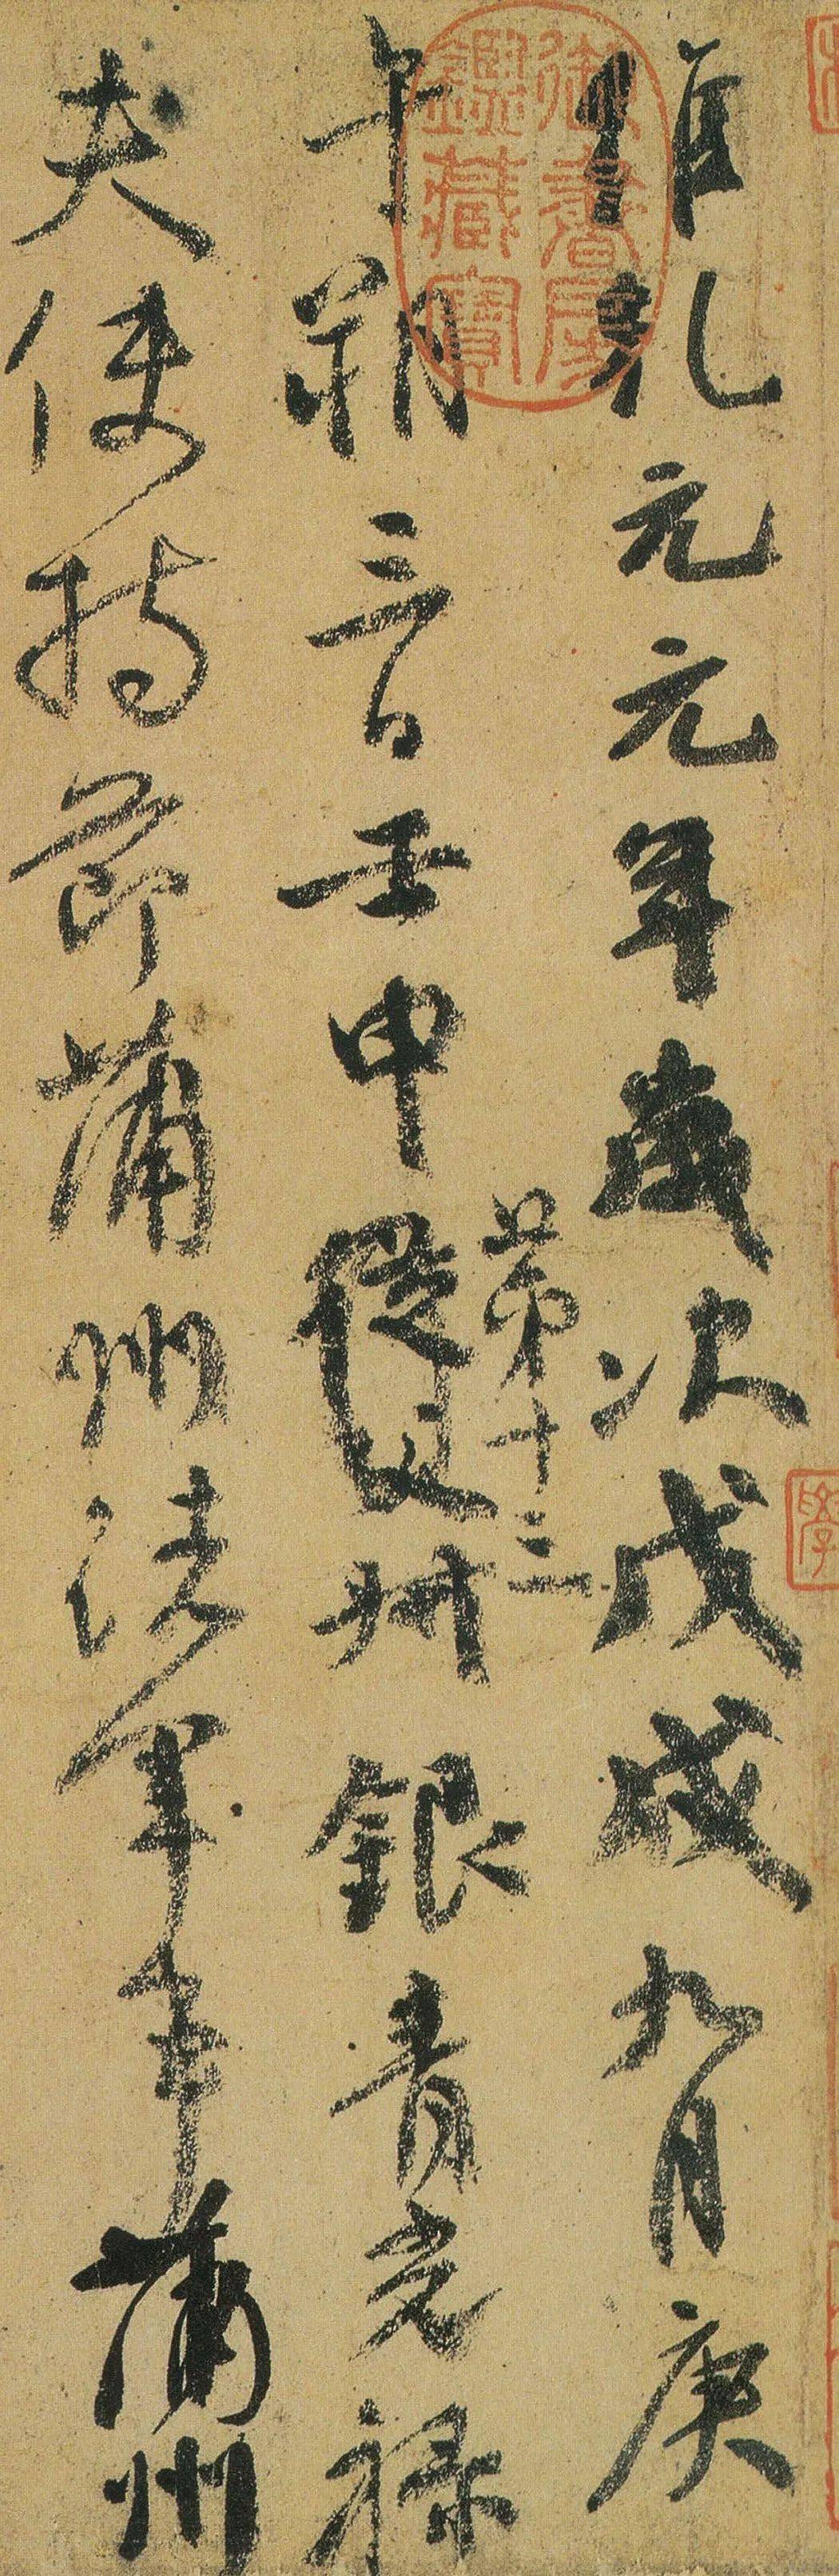 維乾元元年歲次戊戌九月庚
午朔三日壬申從父卅銀青光祿
第十三
夫使持節蒲州諸軍事蒲州
御書房鑑藏寶